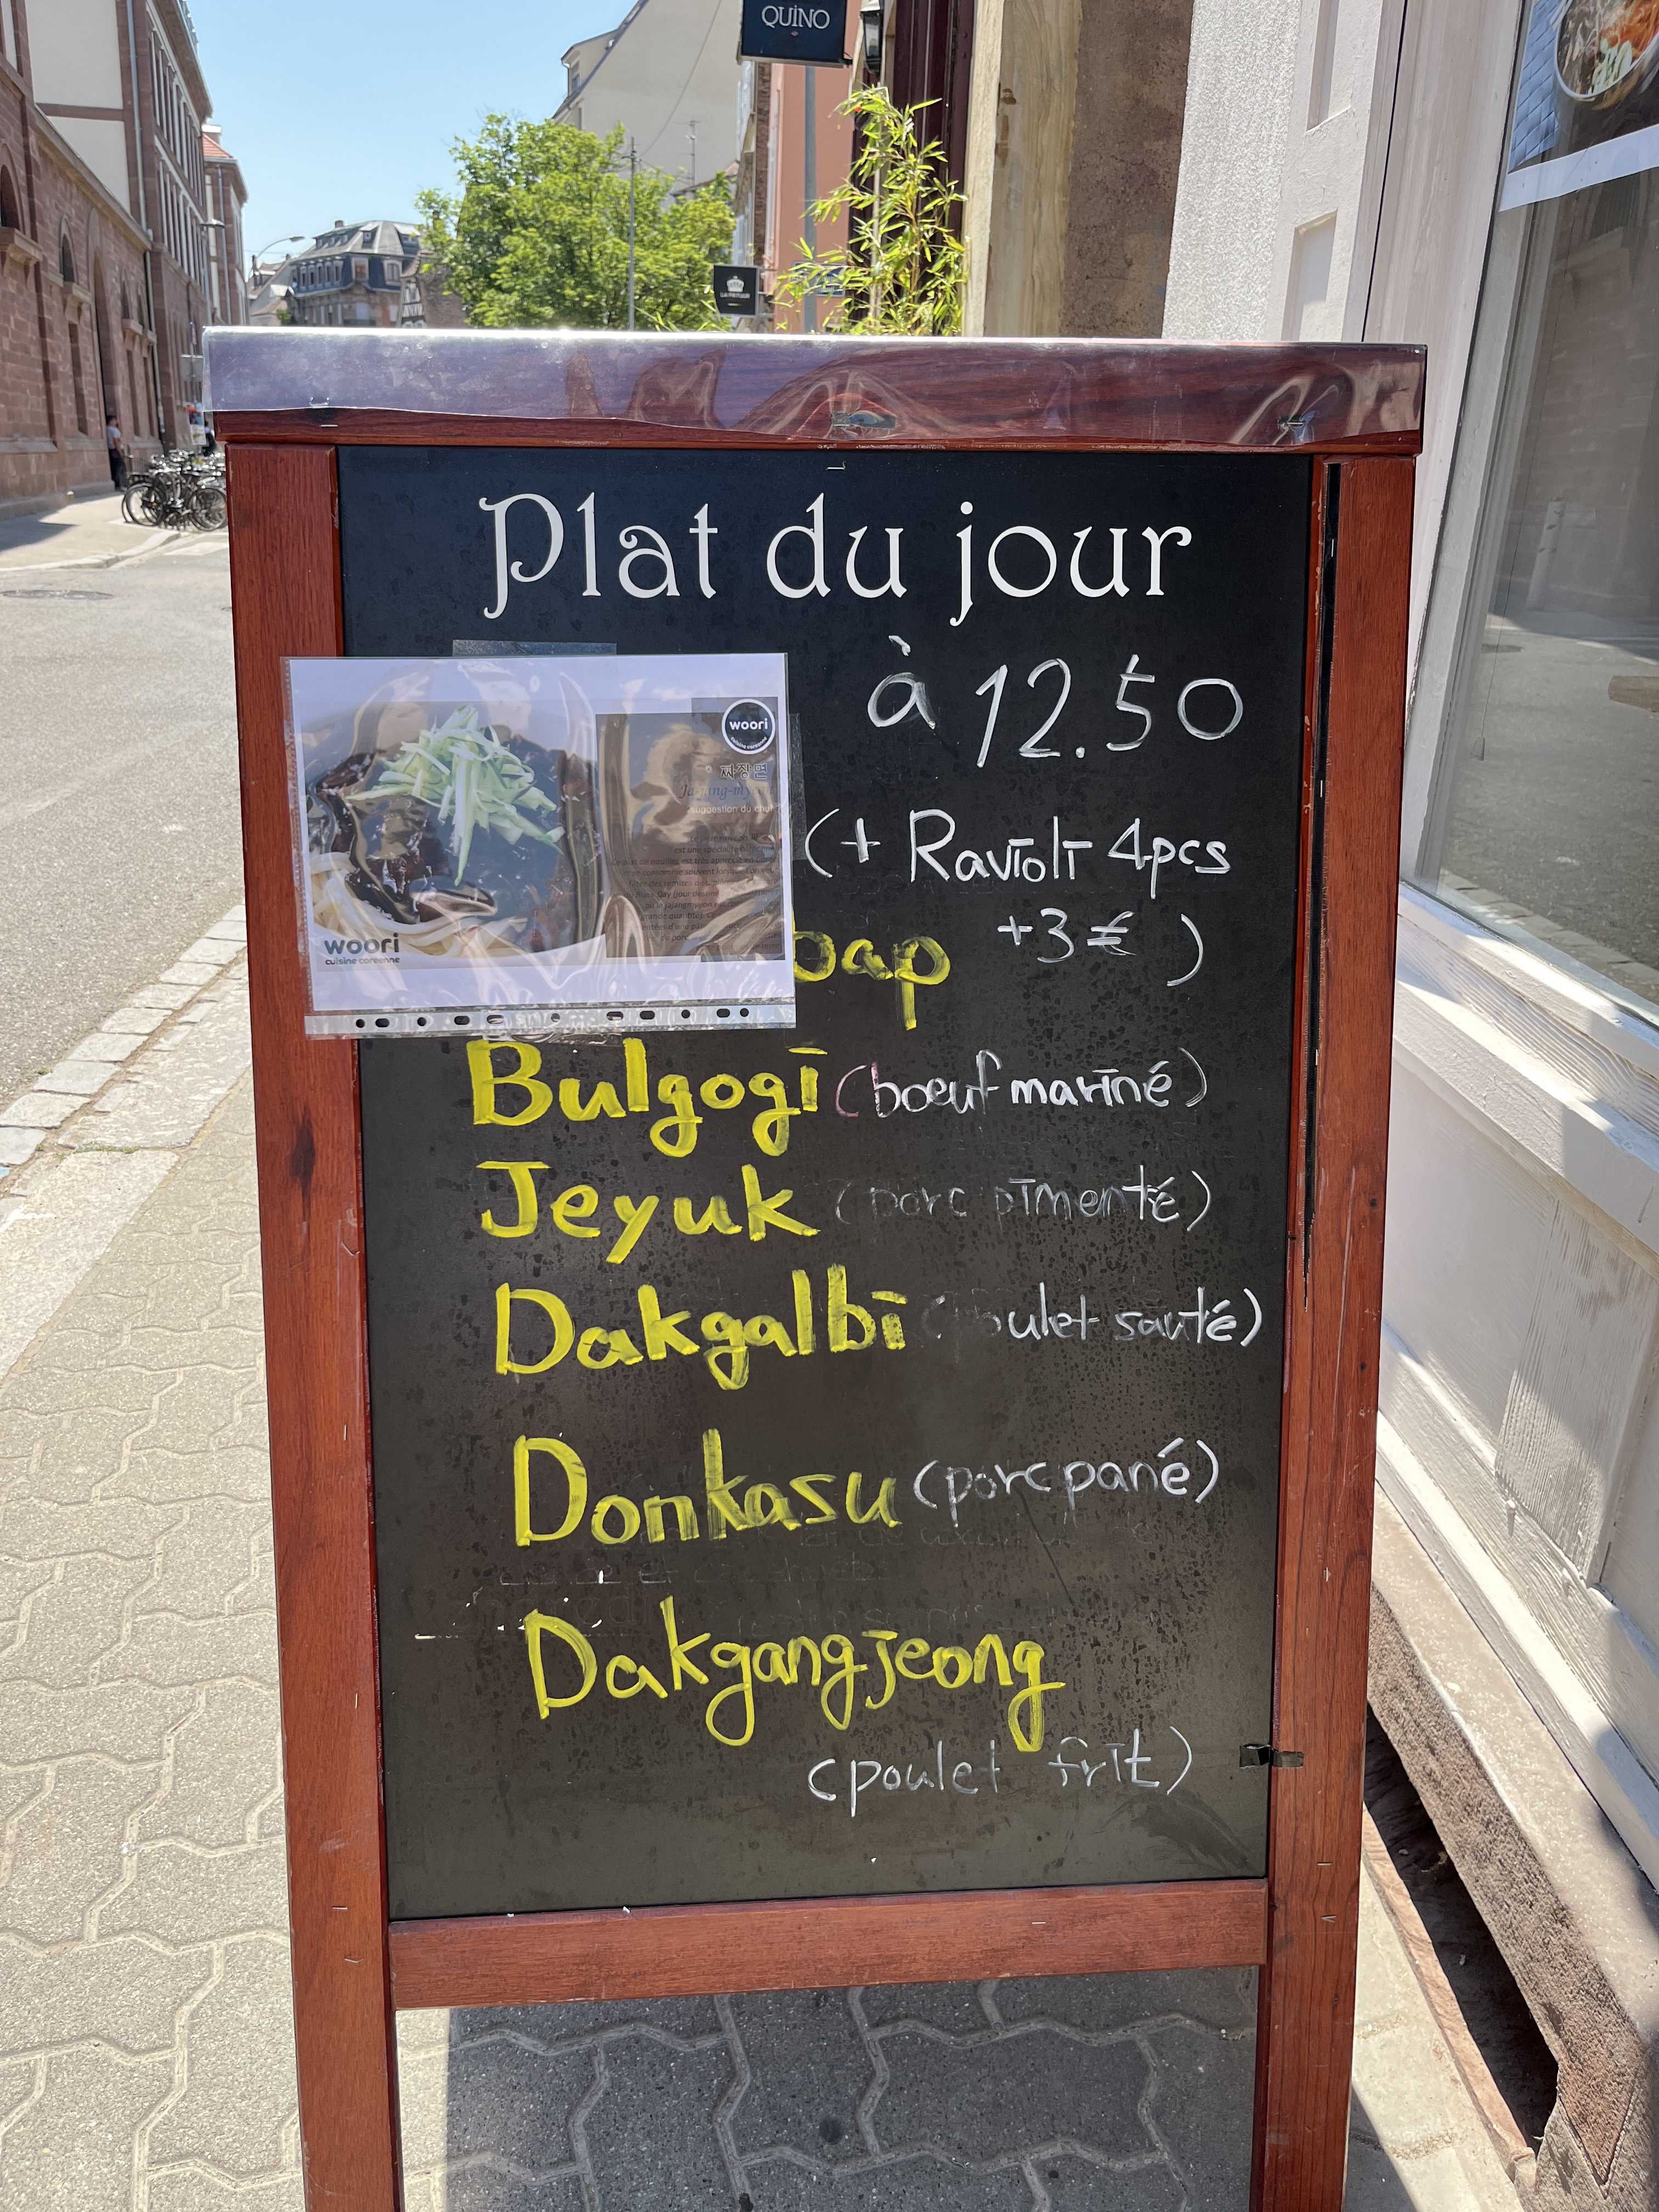 QUINO
Plat du jour
à 12.50
woori
cuisine coréenne
짜장면
suggestion du chef
woori
cuisine coréenne
(+ Ravioli 4pcs
+3€ )
bap
Bulgogi (boeuf mariné)
Jeyuk (porc pimenté)
Dakgalbi (poulet sauté)
Donkasu (porc pané)
Dakgangjeong
(poulet frit)